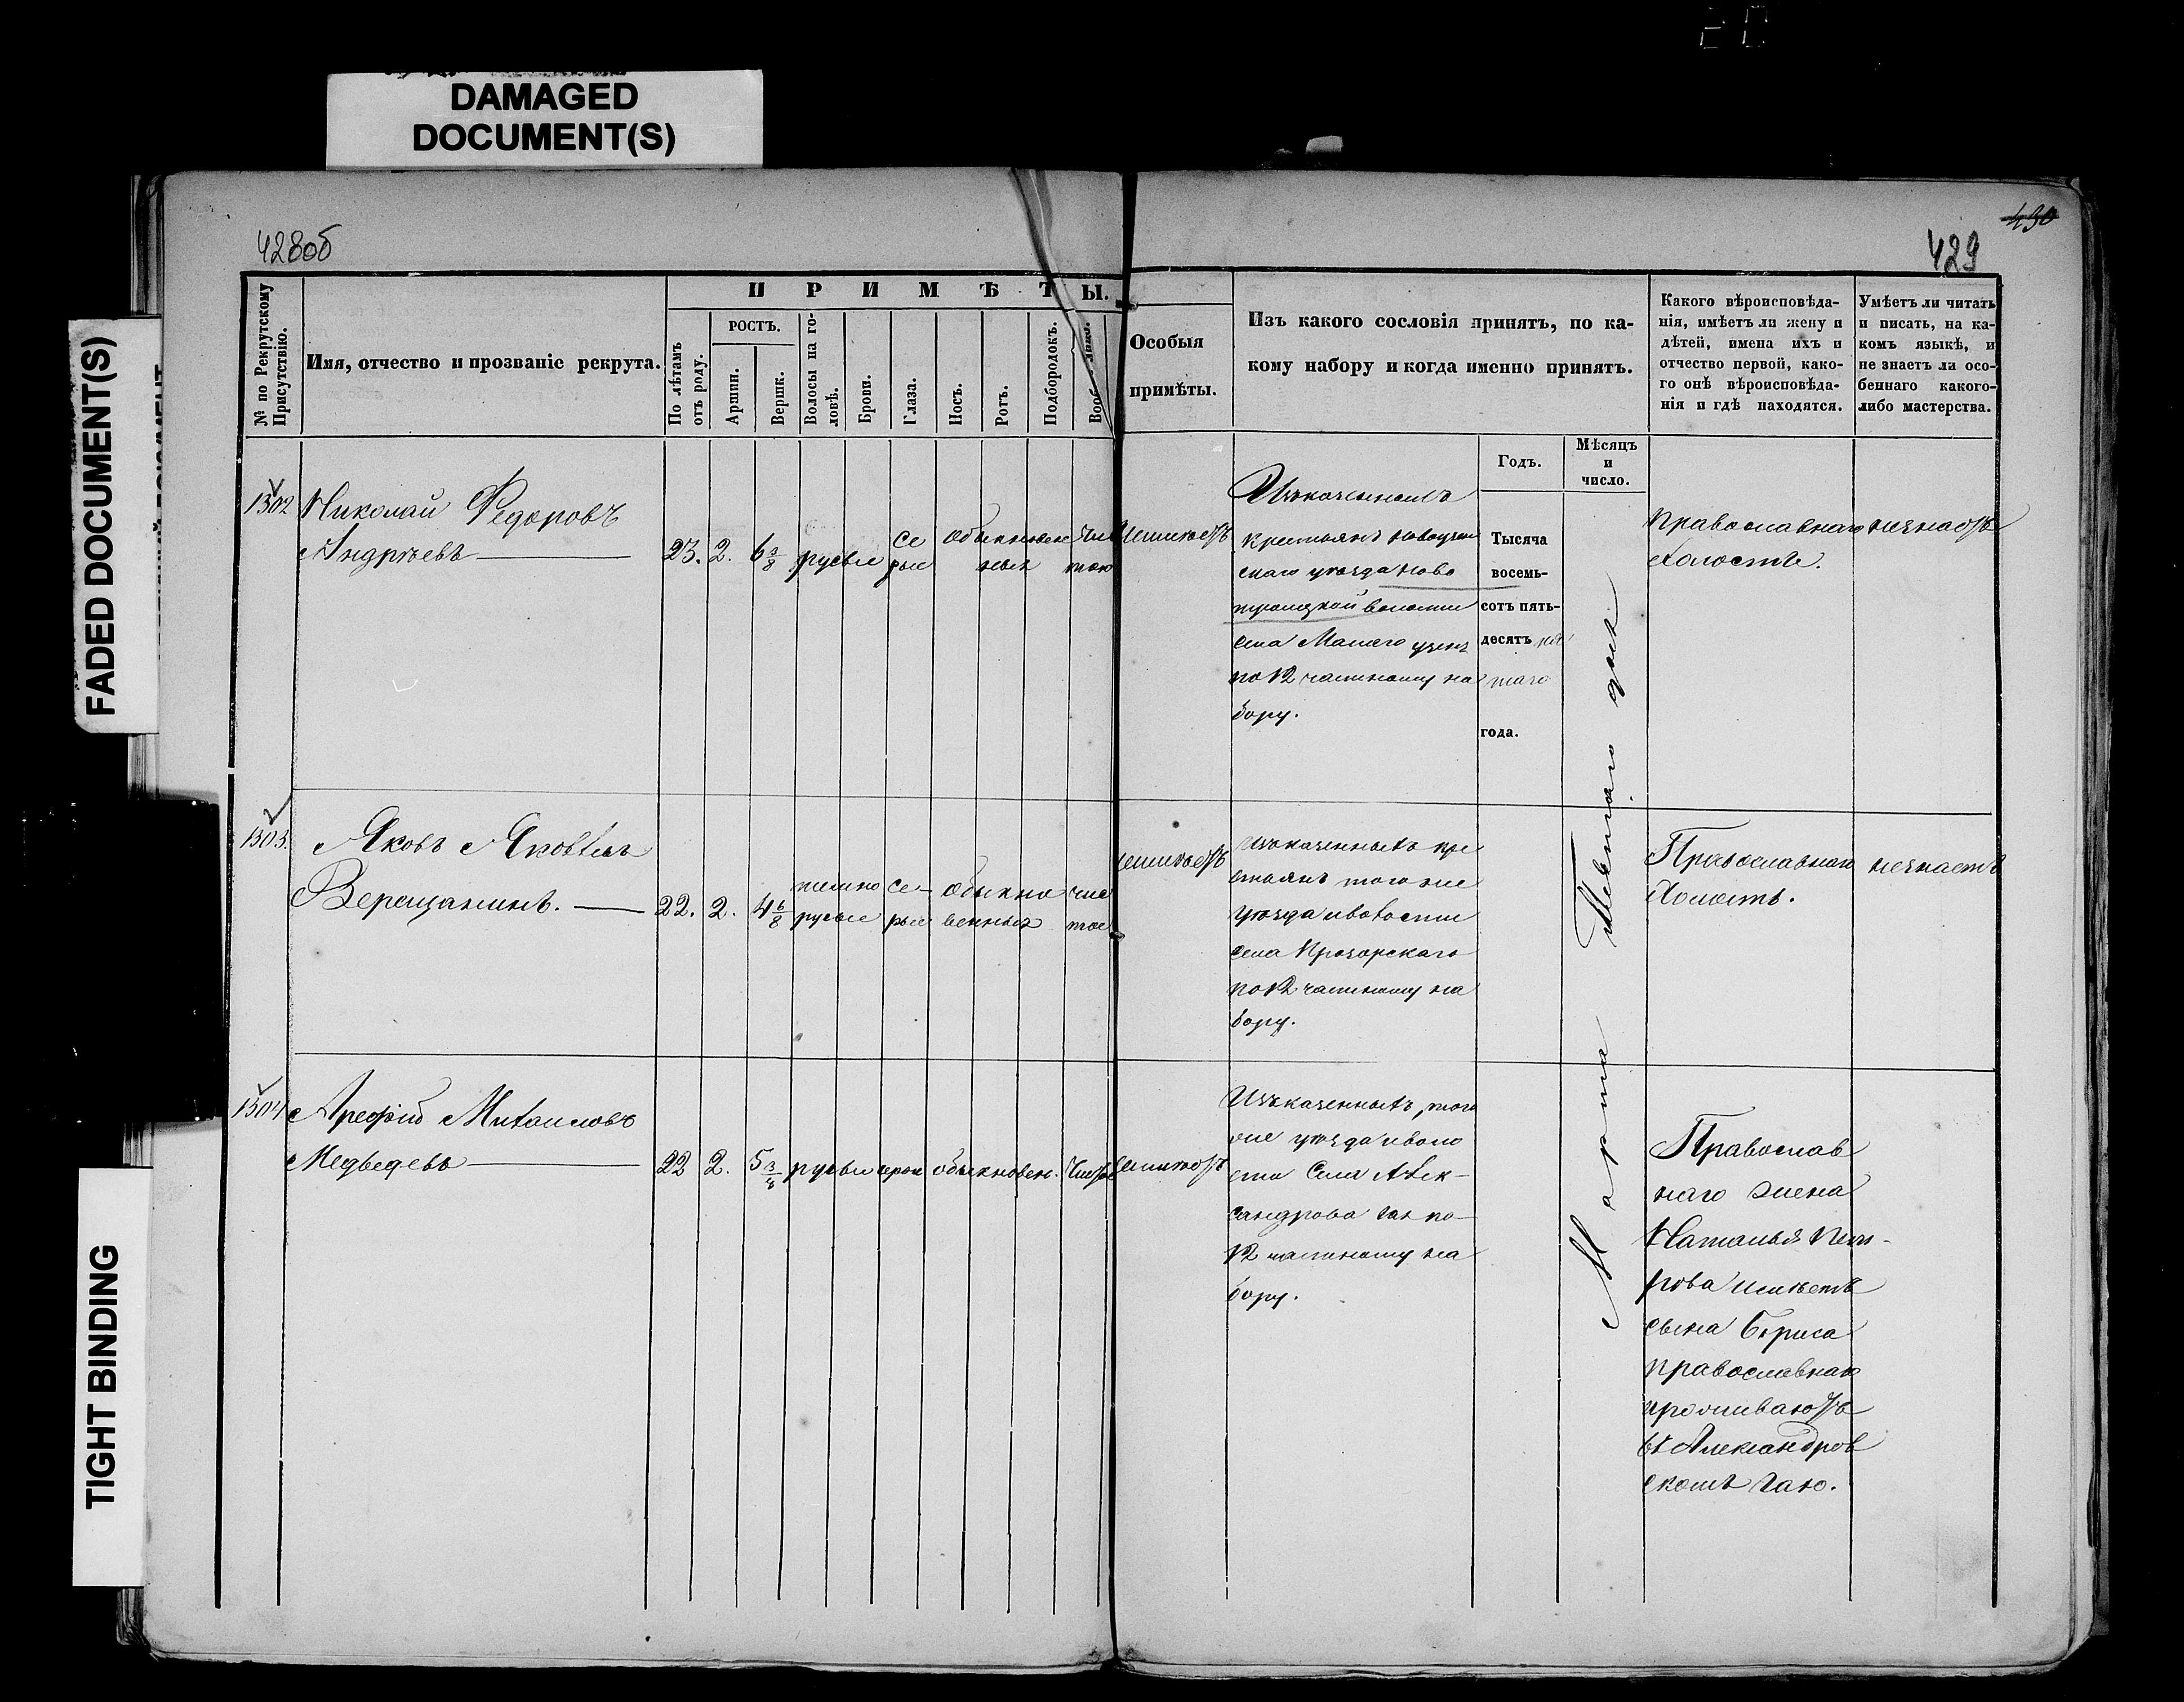 DAMAGED
DOCUMENT(S)
FADED DOCUMENT(S)
TIGHT BINDING
428об
430
429
№ по Рекрутскому
Присутствію.
Имя, отчество и прозваніе рекрута.
ПРИМѢТЫ.
По лѣтамъ
отъ роду.
РОСТЪ.
Аршин.
Вершк.
Волосы на го-
ловѣ.
Брови.
Глаза.
Носъ.
Ротъ.
Подбородокъ.
Вооб лико.
Особыя
примѣты.
Изъ какого сословія принятъ, по ка-
кому набору и когда именно принятъ.
Какого вѣроисповѣда-
нія, имѣетъ ли жену и
дѣтей, имена ихъ и
отчество первой, како-
го онѣ вѣроисповѣда-
нія и гдѣ находятся.
Умѣетъ ли читать
и писать, на ка-
комъ языкѣ, и
не знаетъ ли осо-
беннаго какого-
либо мастерства.
Годъ.
Мѣсяцъ
и
число.
1302
Николай Федоровъ
Андреевъ
23. 2. 6 3/8 русые
се
рые
обыкновен
ные
чис
тое
неимеетъ
Изъ казенныхъ
крестьянъ Новоузен
скаго уѣзда Ново
троицкой волости
села Малаго узеня
по 12 частному на
бору.
Тысяча
восемь-
сотъ пять-
десятъ пя
таго
года.
Марта Девятаго дня
Православнаго
Холостъ.
незнаетъ
1303.
Яковъ Яковлевъ
Верещагинъ.
22. 2. 4 6/8
темно
русые
се-
рые
обыкно
венные
чис
тое
неимеетъ
Изъ казенныхъ кре
стьянъ того же
уѣзда и волости
села Прозорскаго
по 12 частному на
бору.
Православнаго
Холостъ.
незнаетъ
1304
Арефій Михайловъ
Медведевъ
22 2. 5 3/8 русые серые обыкновен. Чистое
неимеетъ
Изъ казенныхъ, того
же уѣзда и воло
сти Села Алек-
сандрова гая по-
12 частному на
бору.
Православ
наго жена
Наталья Пет-
рова имѣетъ
сына Бориса
православнаго
проживаютъ
въ Александров
скомъ гаю.